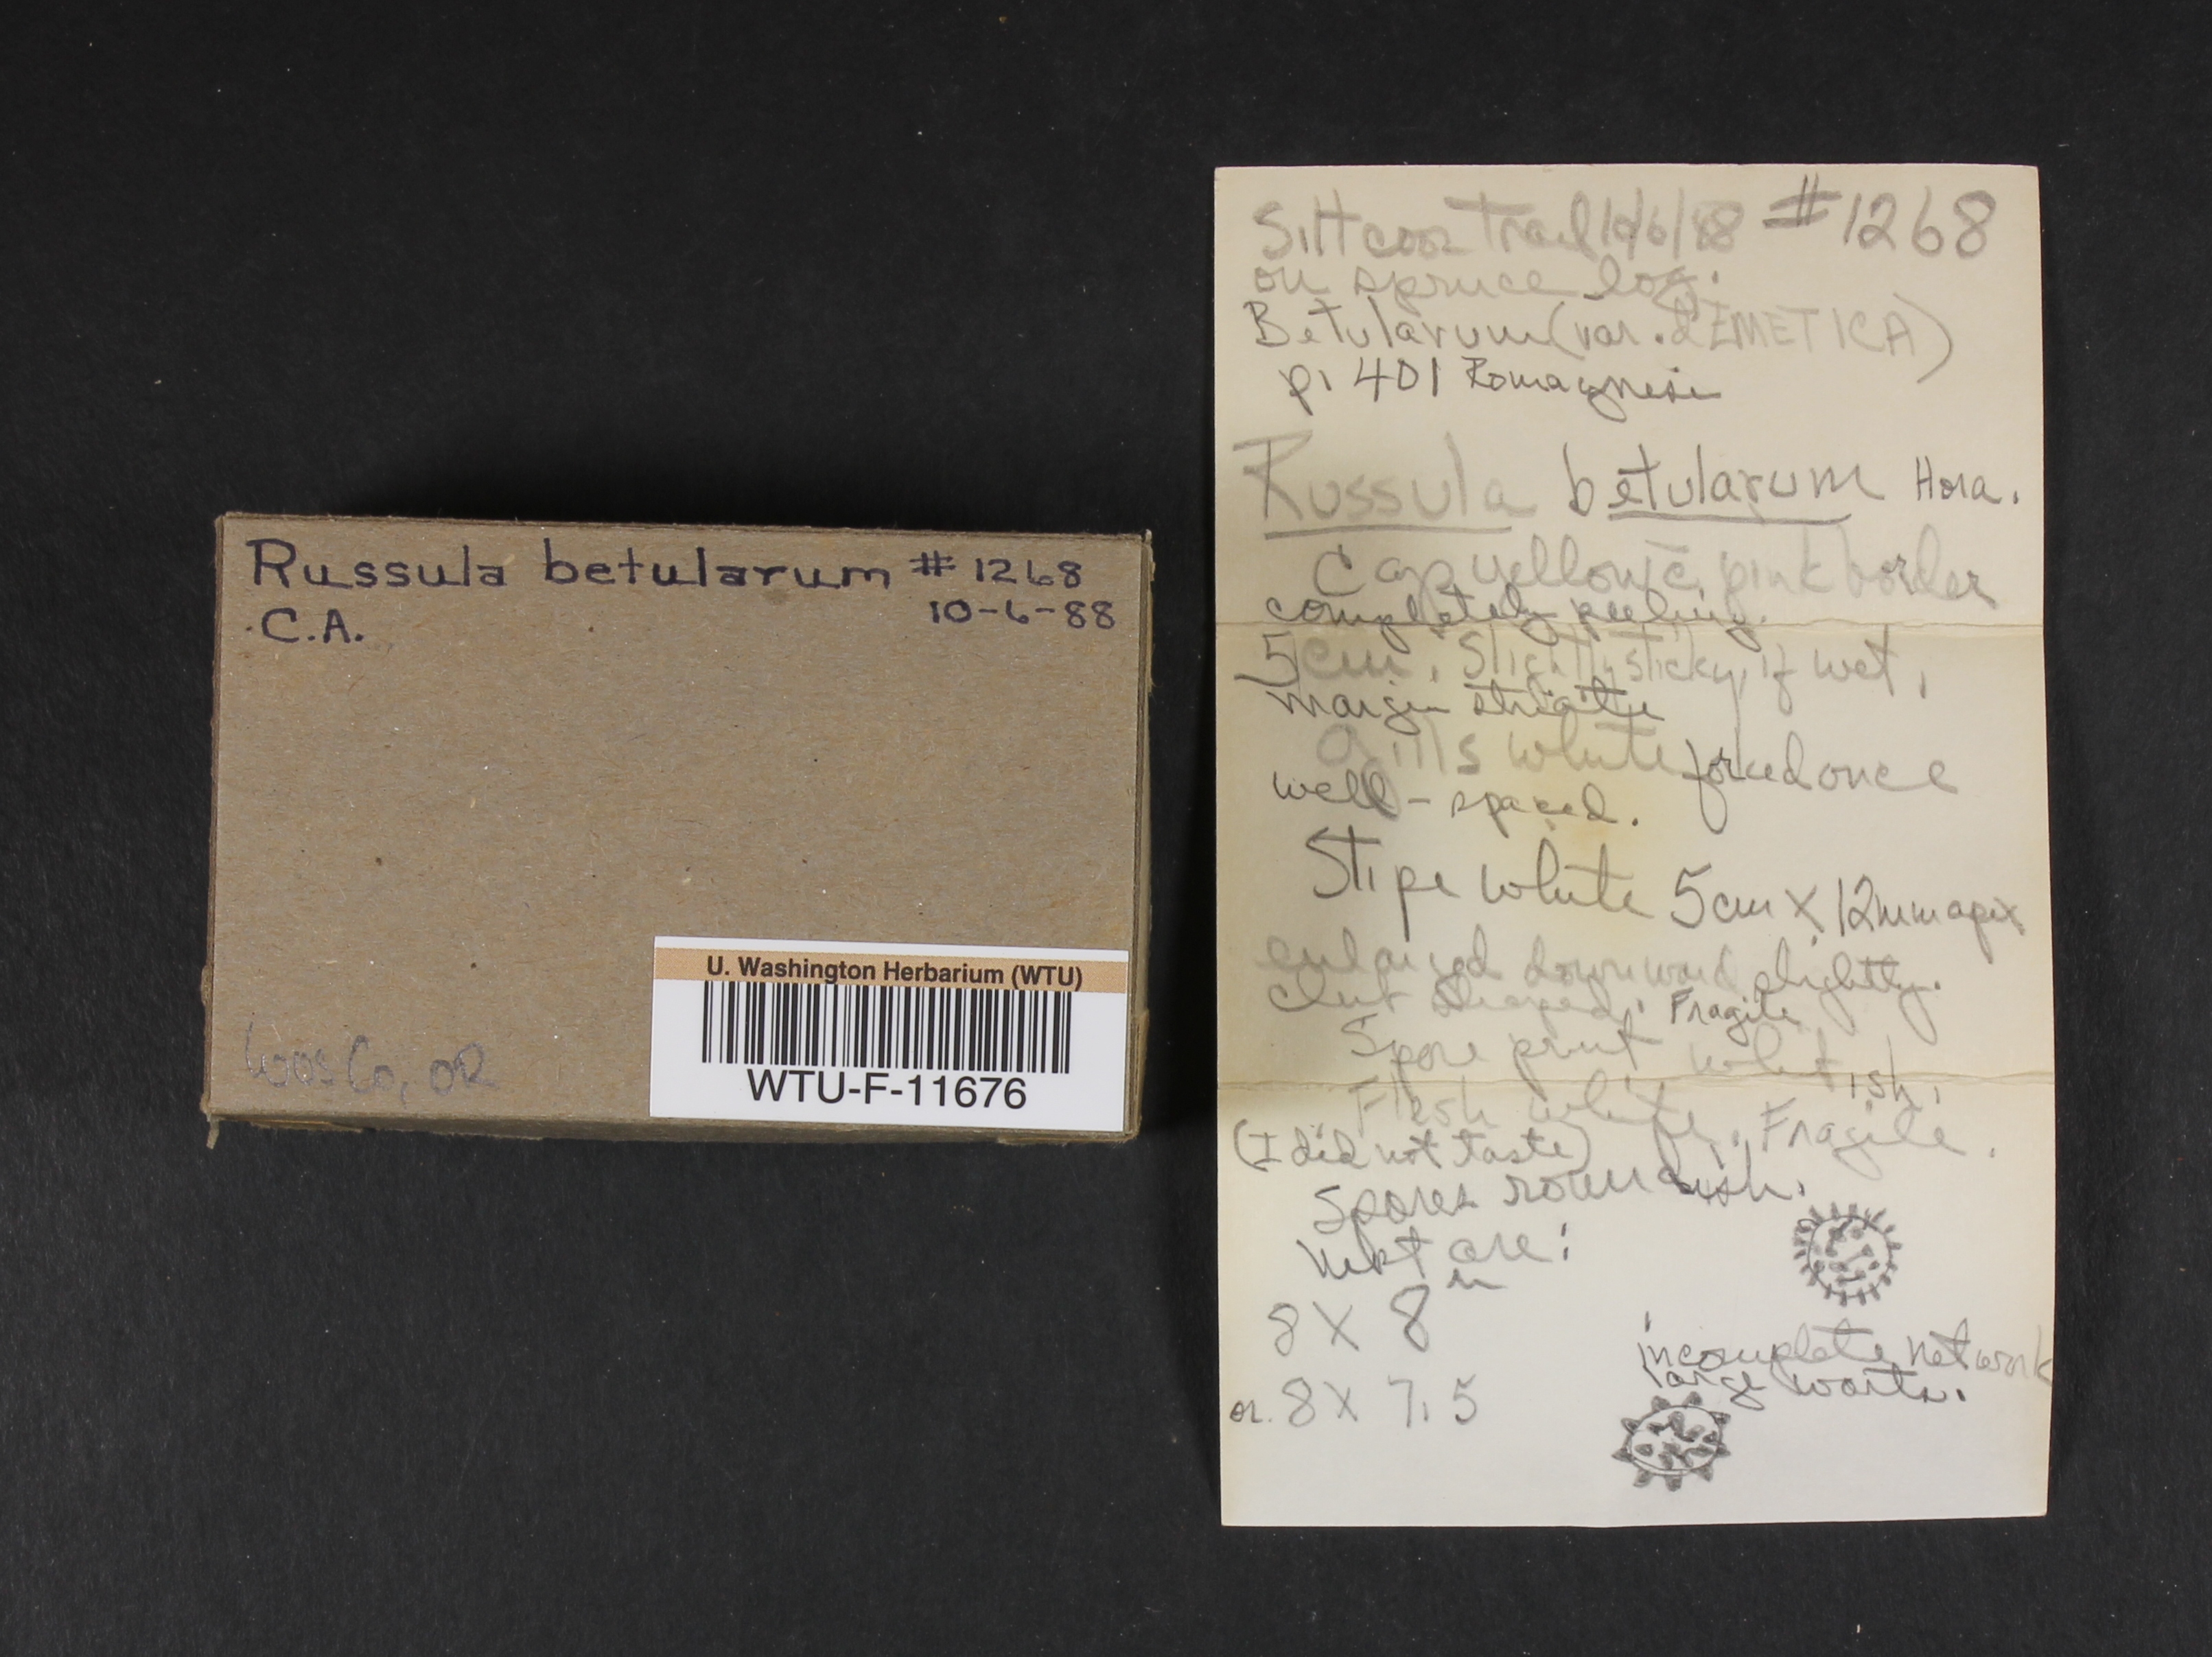 Russula betularum # 1268
10-6-88
C.A.
Coos Co, OR
U. Washington Herbarium (WTU)
WTU-F-11676
Siltcoos Trail 10/6/88 #1268
on spruce log.
Betularum (var. d'EMETICA)
p. 401 Romagnesi
Russula betularum Hora.
Cap yellow c̄ pink border
completely peeling.
5 cm. Slightly sticky if wet.
margin striate
Gills white forked once
well-spaced.
Stipe white 5cm X 12mm apex
enlarged downward slightly.
club shaped. Fragile
Spore print whitish.
Flesh white. Fragile.
(I did not taste)
Spores roundish.
Most are:
8 X 8 u
or. 8 X 7.5
incomplete network
large warts.